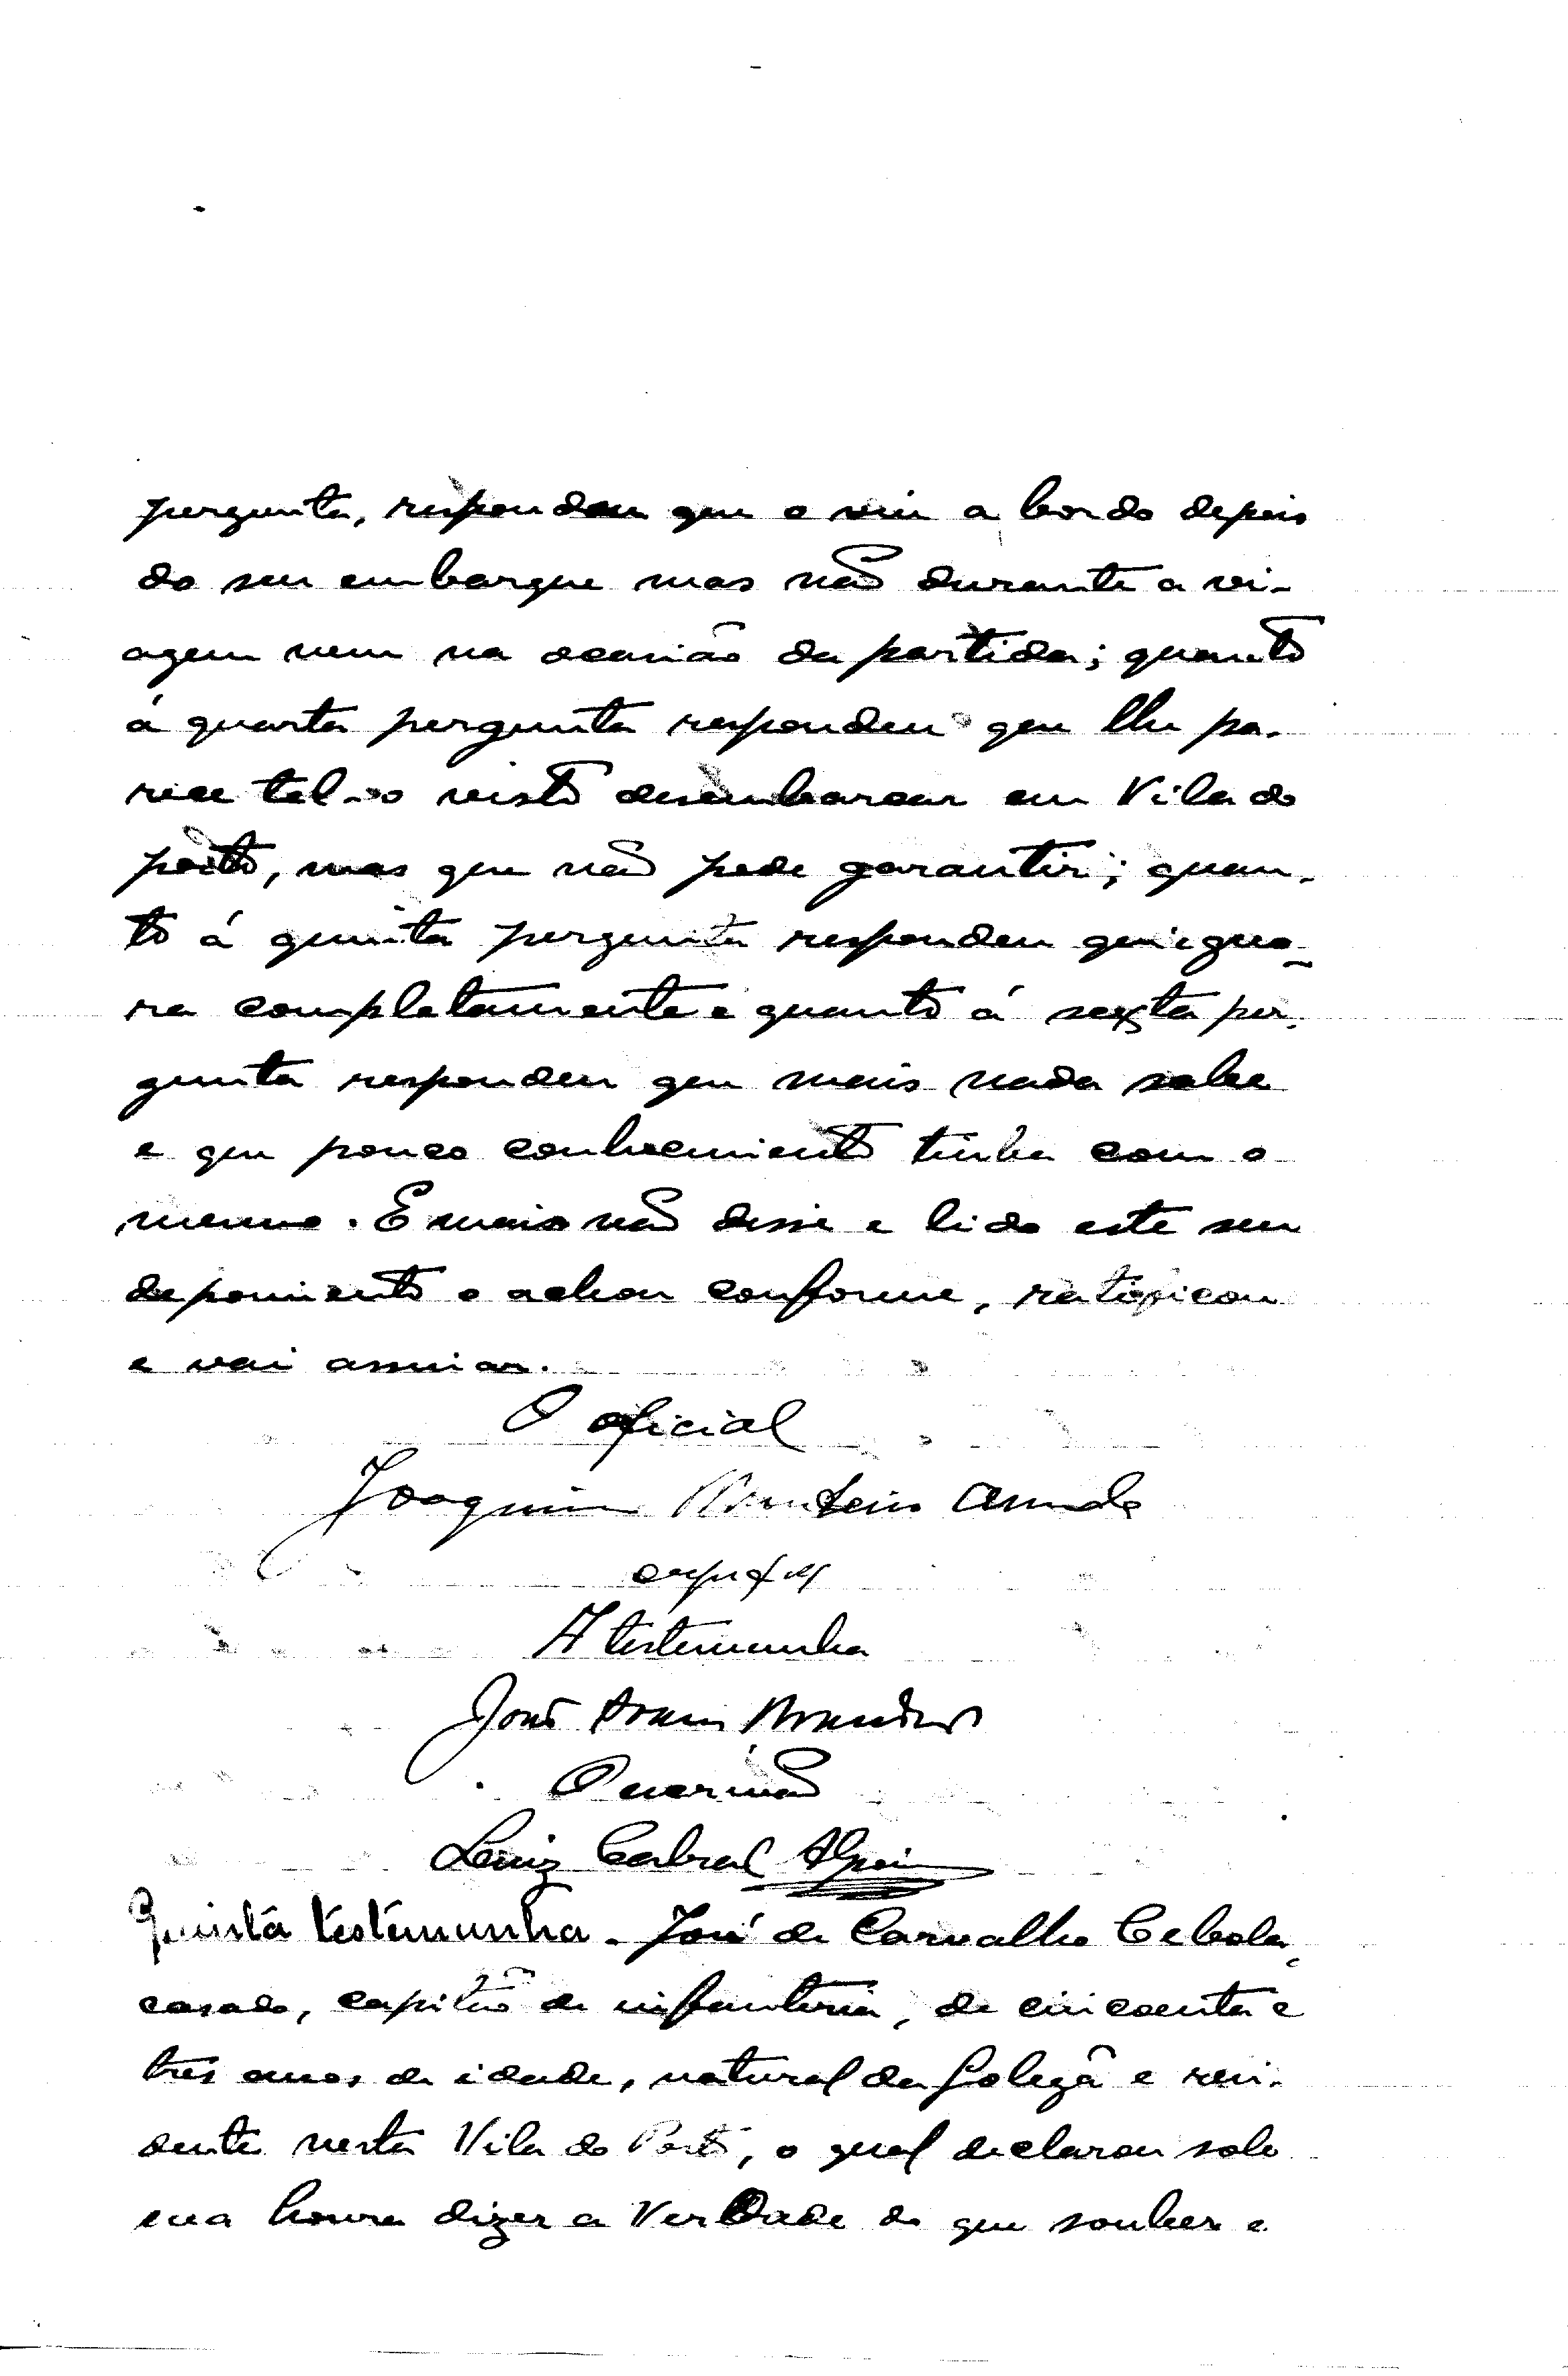 pergunta, respondeu que o viu a bordo depois
do seu embarque mas não durante a vi-
agem nem na ocasião da partida; quanto
á quarta pergunta respondeu que lhe pa-
rece tel-o visto desembarcar em Vila do
porto, mas que não pode garantir; quan-
to á quinta pergunta respondeu que igno-
ra completamente e quanto á sexta per-
gunta respondeu que mais nada sabe
e que pouco conhecimento tinha com o
mesmo. E mais não disse e lido este seu
depoimento o achou conforme, ratificou
e vai assinar.
O oficial
Joaquim Monteiro
A testemunha
José
O escrivão
Luiz Cabral
Quinta testemunha - José de Carvalho Cebola,
casado, capitão de infanteria, de cincoenta e
três anos de idade, natural da Golegã e resi-
dente nesta Vila do Porto, o qual declarou sob
sua honra dizer a Verdade do que souber e